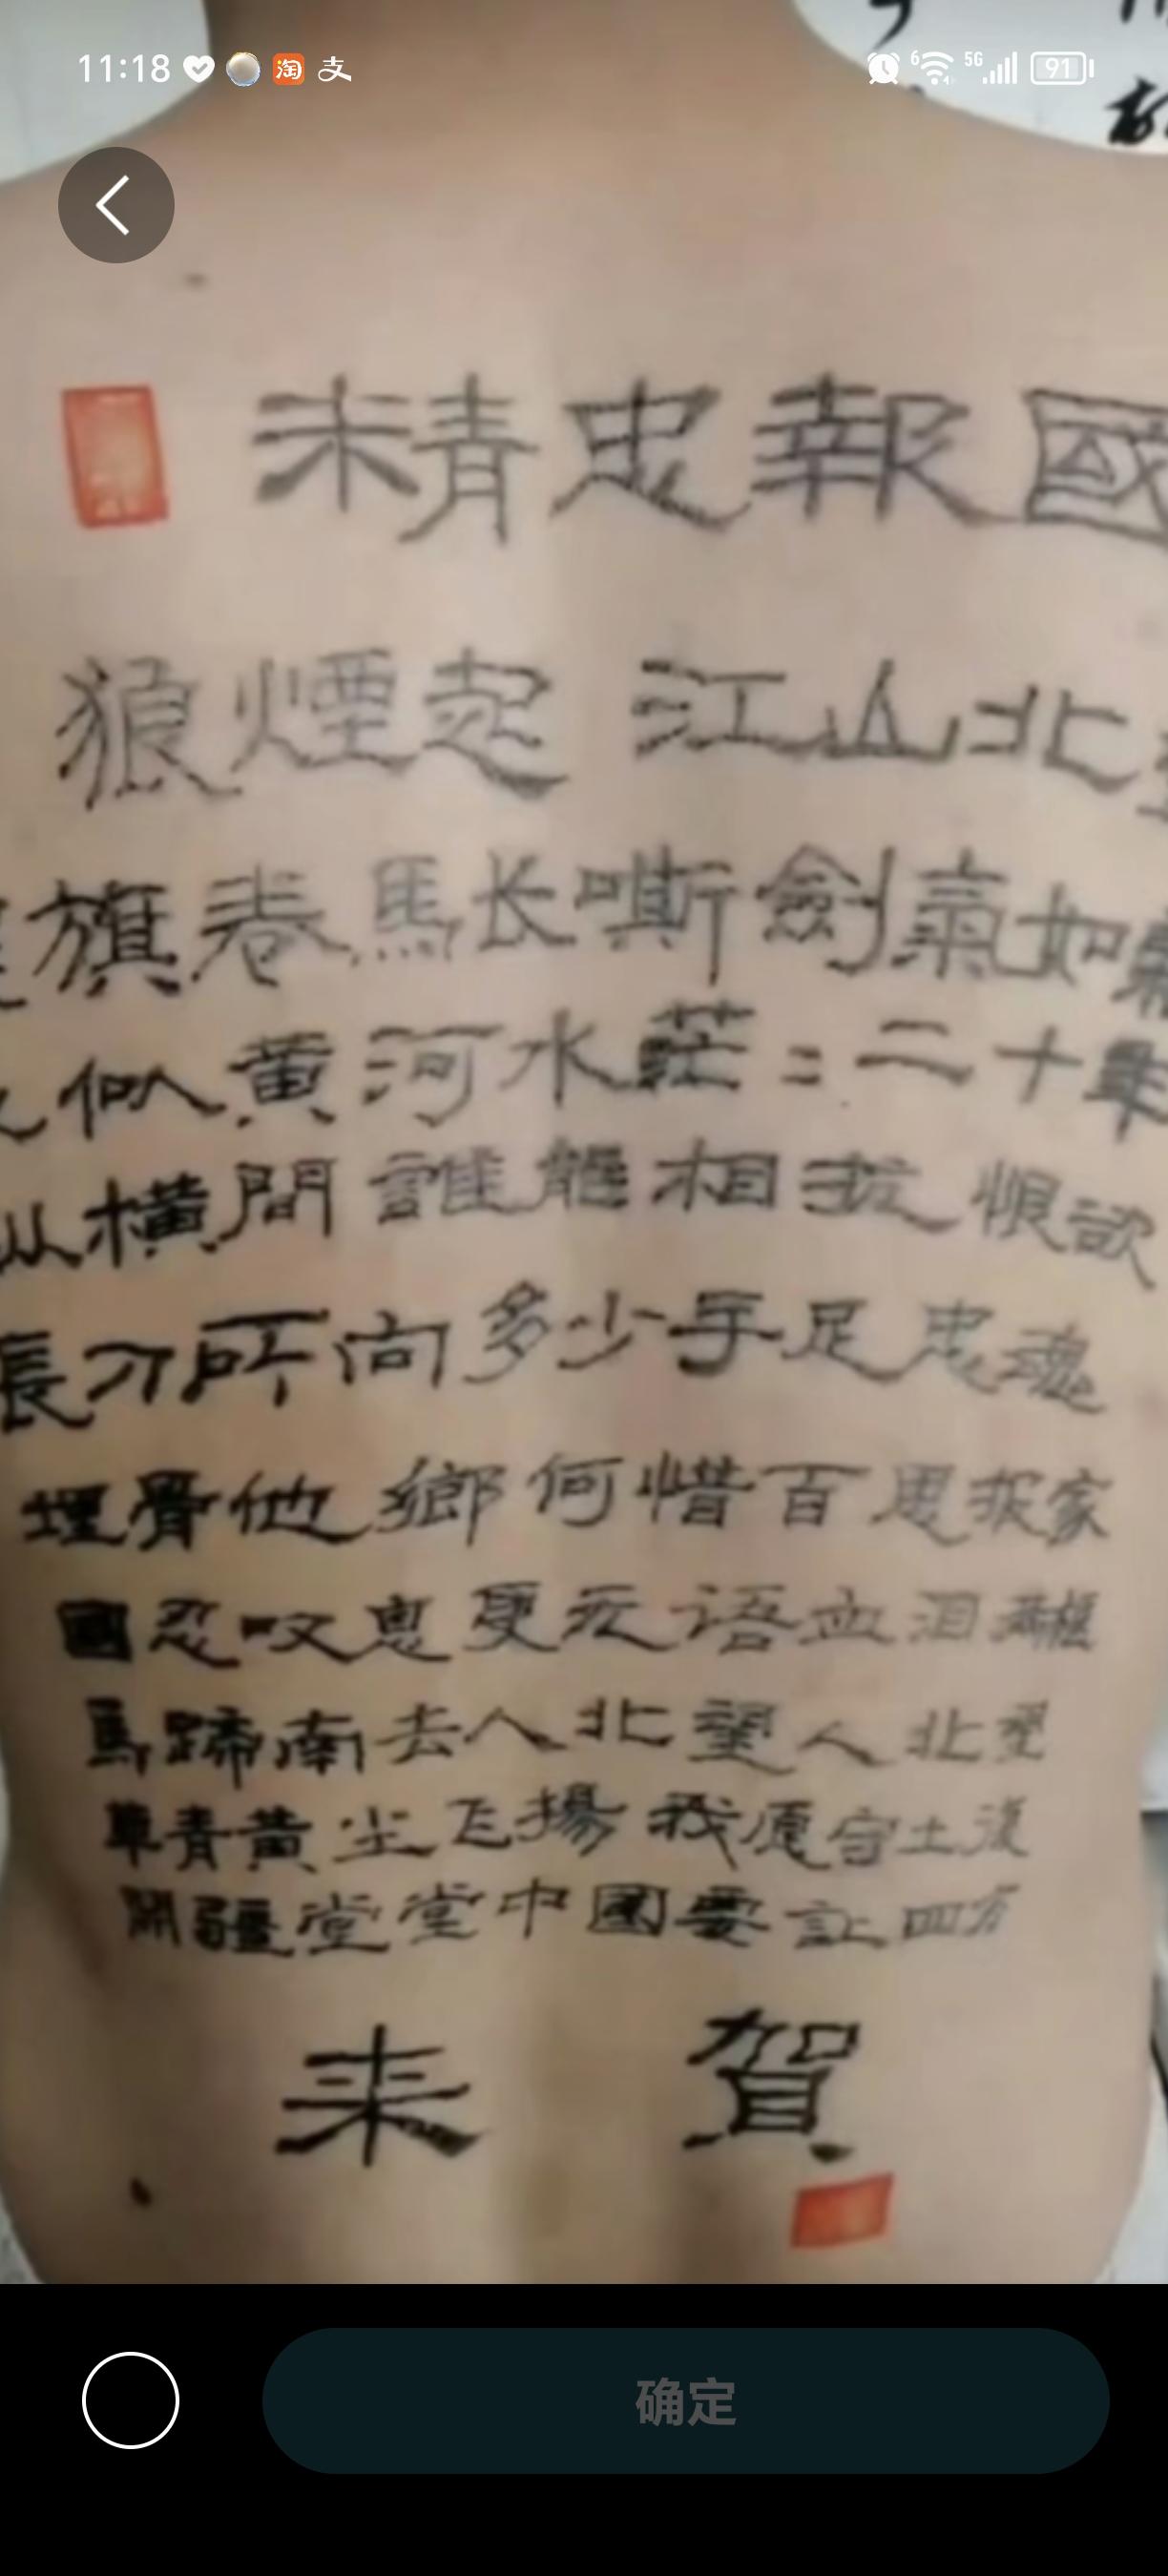 11:18 淘 支 6 5G 91
精忠報國
狼煙起 江山北
旗卷馬长嘶劍氣如霜
似黄河水茫：二十年
纵横間誰能相抗 恨欲
長刀所向多少手足忠魂
埋骨他鄉何惜百思报家
國忍叹息更无语血泪满眶
馬蹄南去人北望人北望
草青黄尘飞揚我愿守土復
開疆堂堂中國要让四方
来 賀
确定